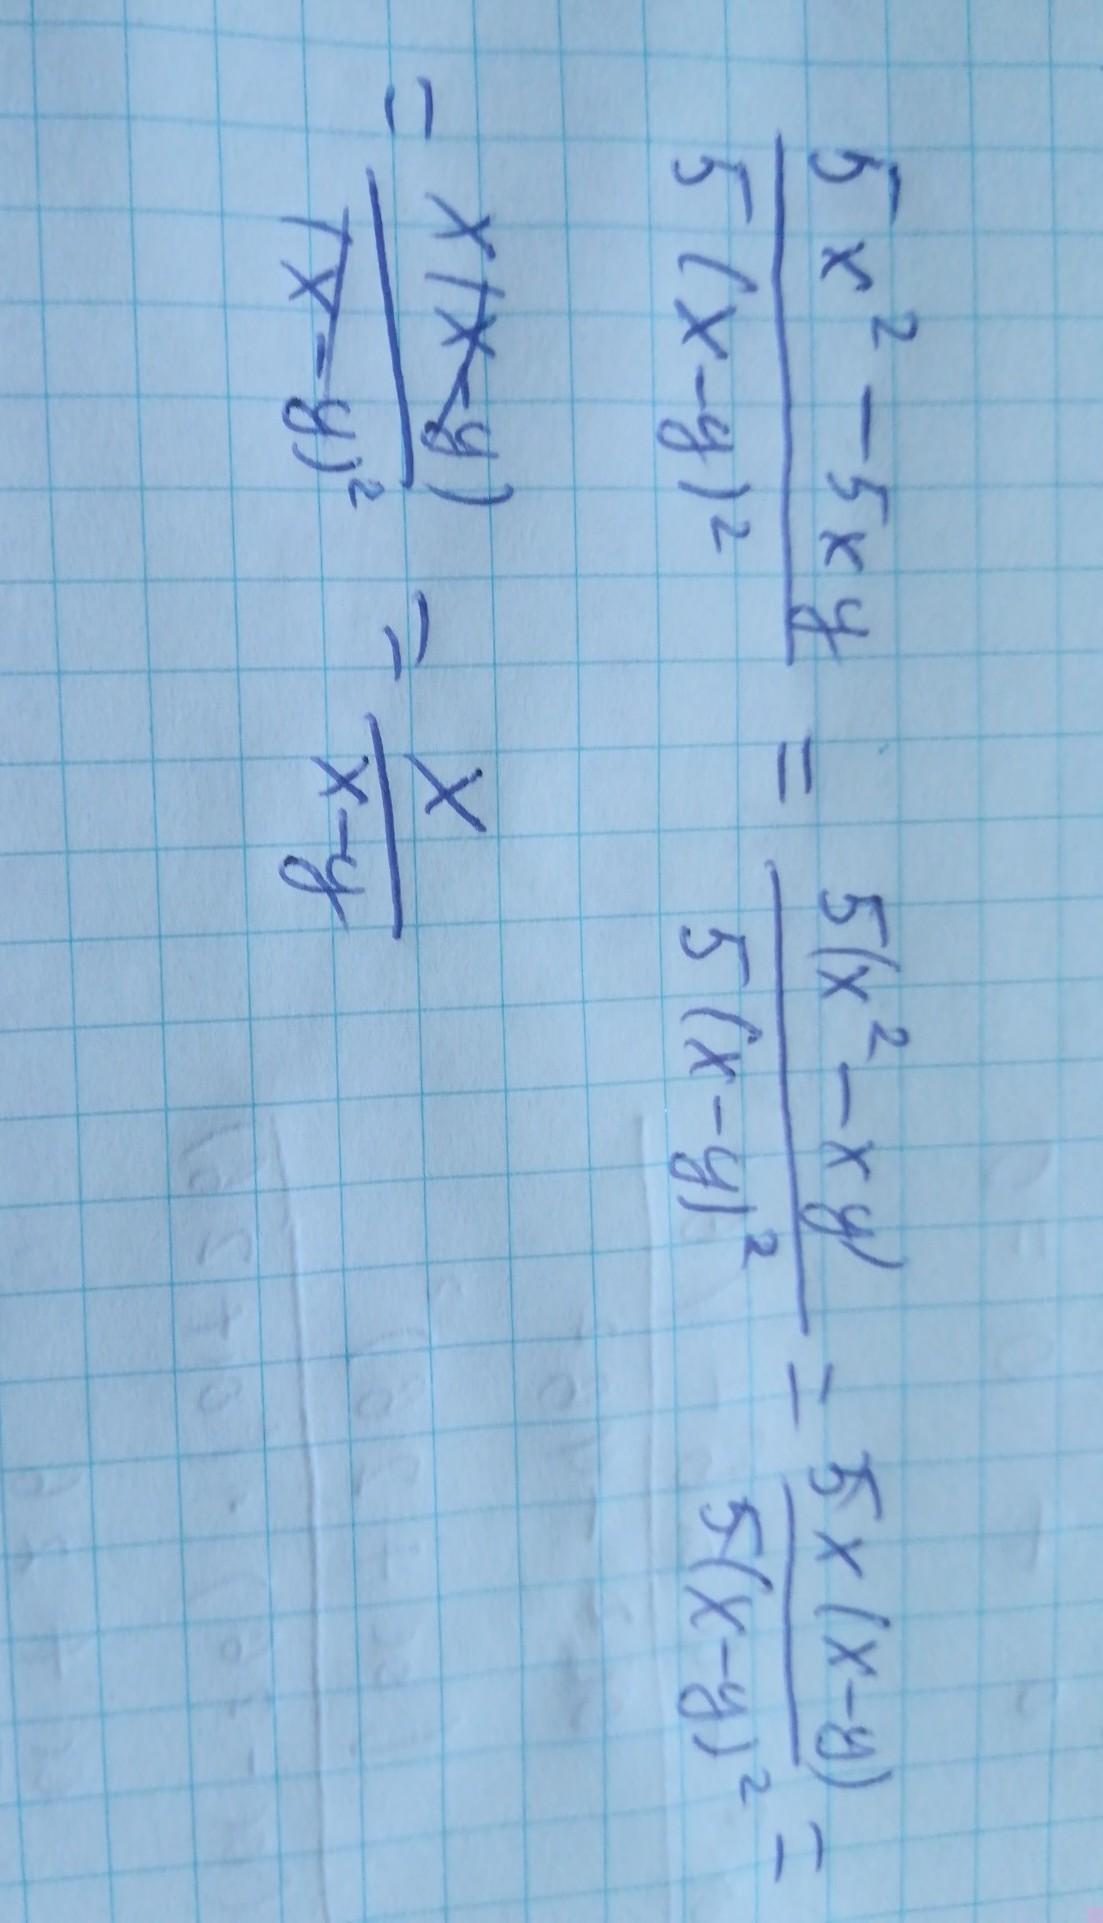 (5x² - 5xy)/(5(x-y)²) = (5(x² - xy))/(5(x-y)²) = (5x(x-y))/(5(x-y)²) =
= (x(x-y))/((x-y)²) = x/(x-y)